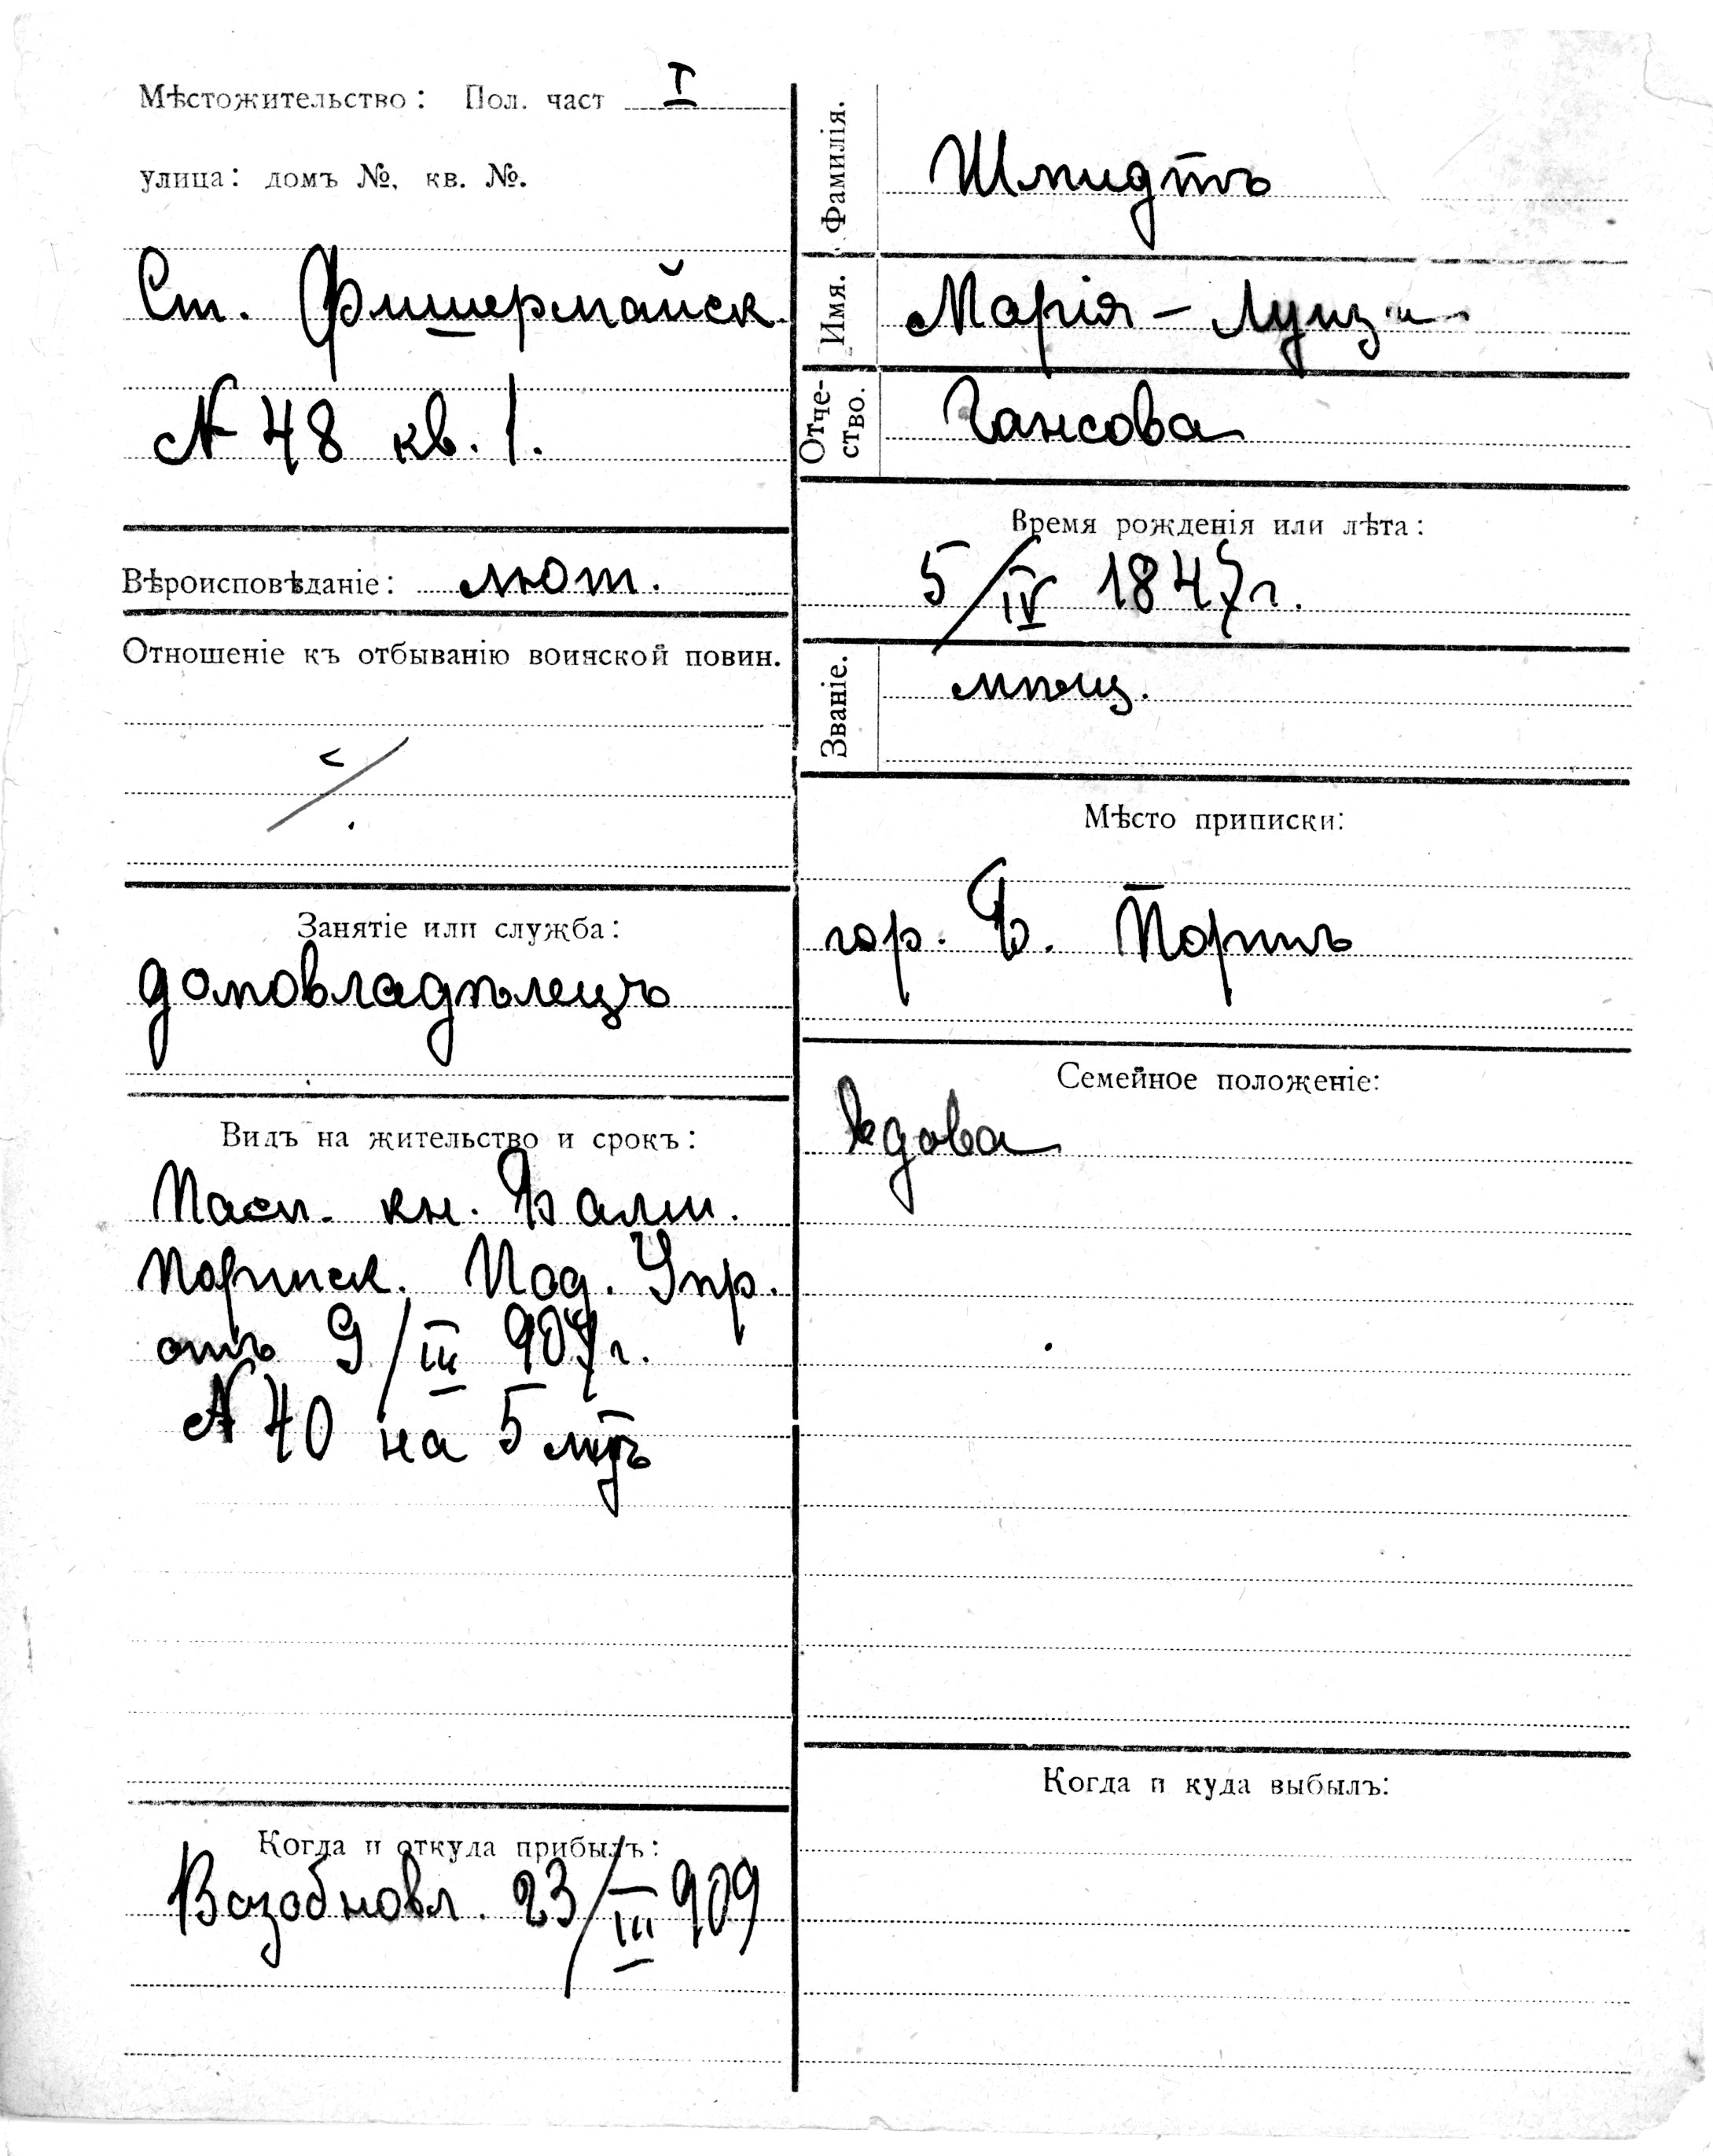 Мѣстожительство: Пол. част I
улица: домъ №, кв. №.
Ст. Фишермайск.
№ 48 кв. 1.
Вѣроисповѣданіе: лют.
Отношеніе къ отбыванію воинской повин.
Занятіе или служба:
домовладѣлецъ
Видъ на жительство и срокъ:
Пасп. кн. Балт.
Портск. Под. Упр.
отъ 9/III 907 г.
№ 40 на 5 лѣтъ
Когда и откуда прибылъ:
Возобновл. 23/III 909
Фамилія. Шмидтъ
Имя. Марія-Луиза
Отче-
ство. Гансова
Время рожденія или лѣта:
5/IV 1847 г.
Званіе. мѣщ.
Мѣсто приписки:
гор. Б. Портъ
Семейное положеніе:
вдова
Когда и куда выбылъ: